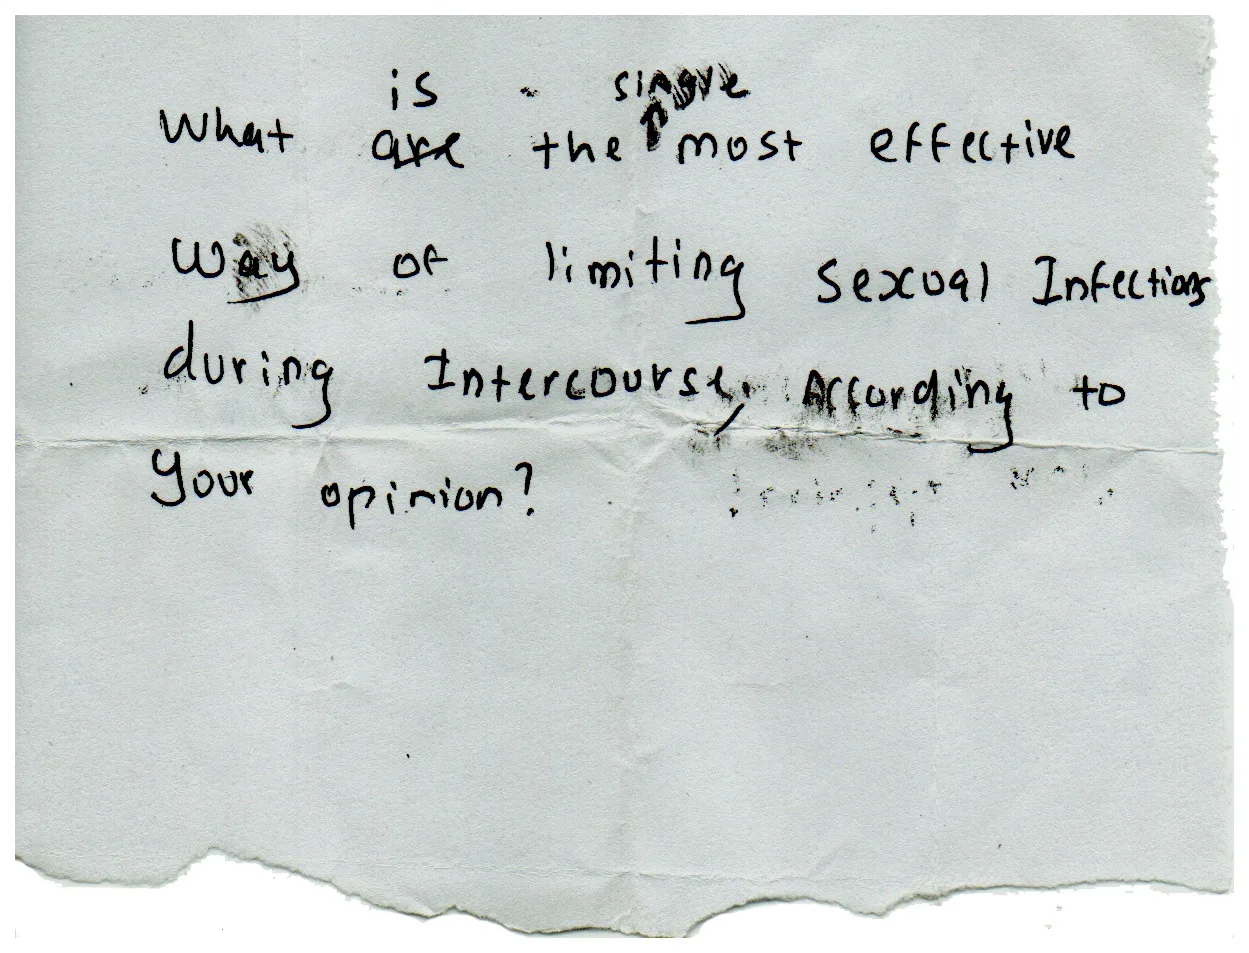 What is the single most effective
way of limiting sexual Infections
during Intercourse, According to
your opinion?